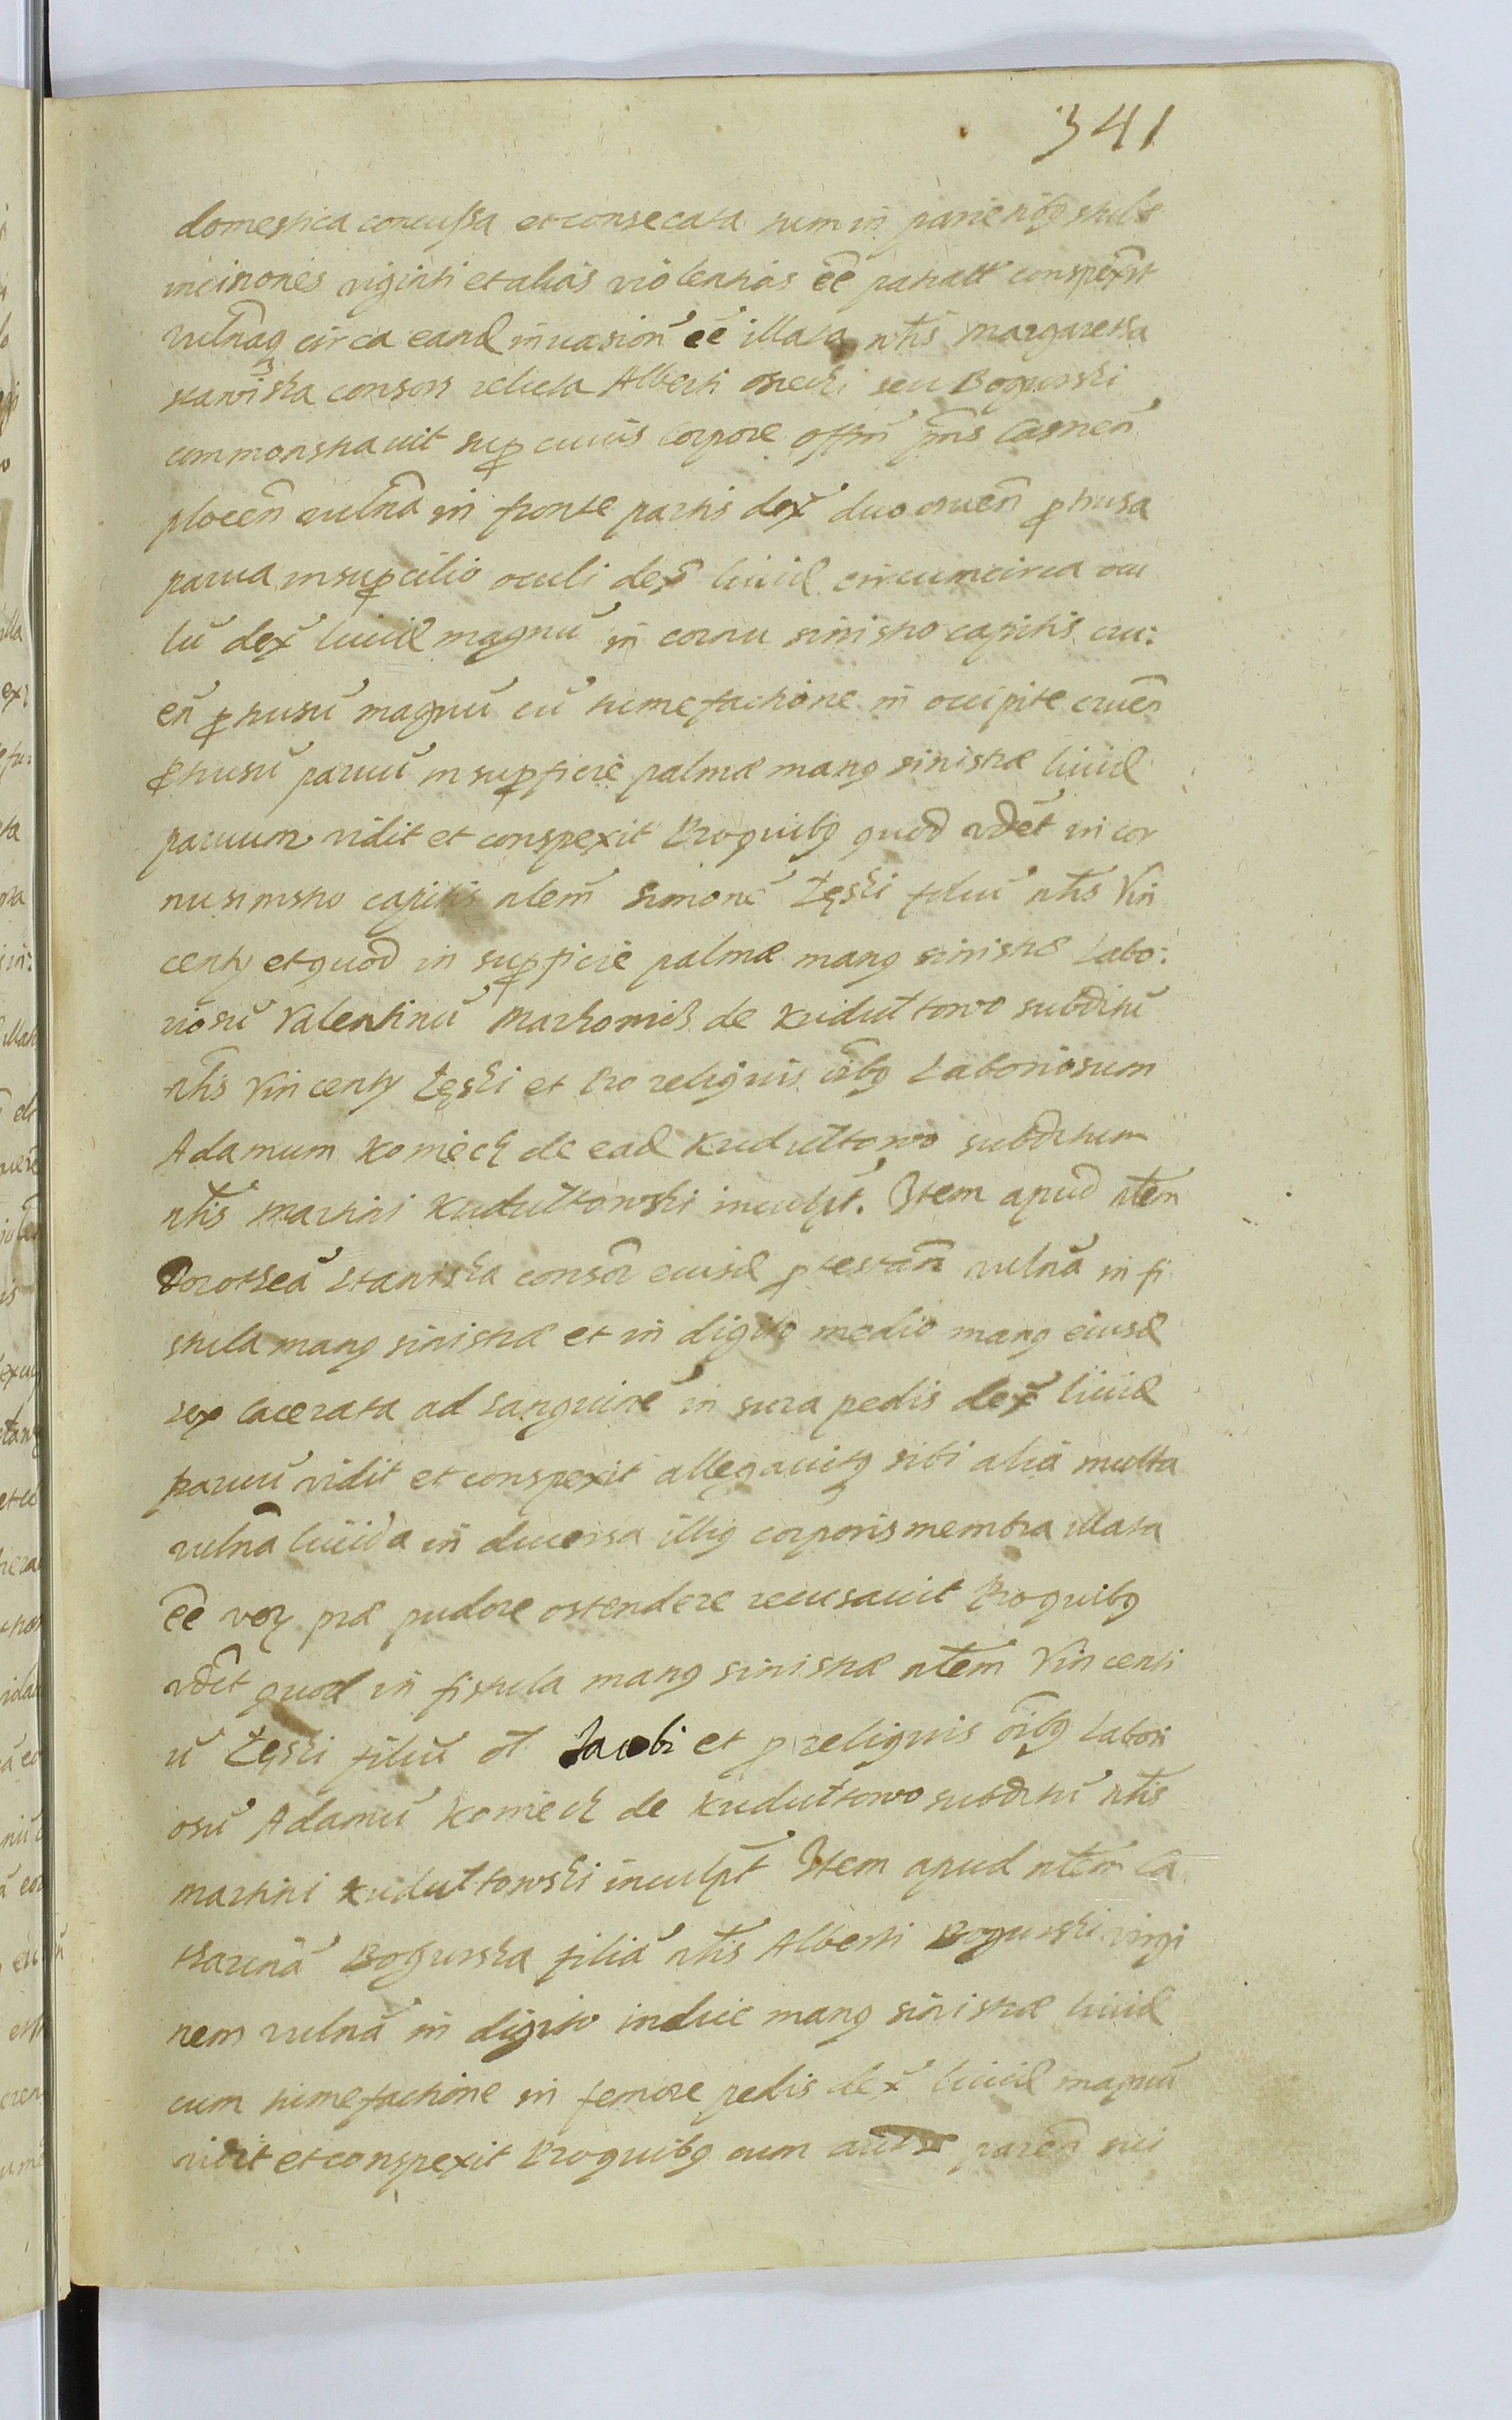 341
domestica concussa et consecata tum in parietibq stube
incisiones viginti et alias violentias eē patratt conspexit
vulnaq circa eand inuasion̄ eē illata ntis Margaretha
stawiska consors relicta Alberti seu Bogurski
commonstrauit sup cuius corpore offm pns Castren
plocen vulna in fronte partis dex duo cruen ptusa
parua in supcilio oculi dex liuid circumcirca ocu
lū dex liuid magnū in cornu sinistro capitis cru:
en ptusū magnū cū tumefactione in occipite cruen
ptusū paruū in supficie palmæ manq sinistræ liuid
paruum vidit et conspexit Proquibq quod vdēt in cor
nu sinistro capitis ntem Simonē Łęski filiū ntis Vin
centy et quod in supficie palmæ manq sinistræ Labo:
riosū Valentinū de Kudułtowo subditū
ntis Vincenty Łęski et Pro reliquis oībq Laboriosum
Adamum Komięcz de ead Kudułtowo subditum
ntis Martini Kudułtowski inculpt. Item apud ntem
Dorotheā Stawiska consor eiusd ptestan vulnā in fi
stula manq sinistræ et in digito medio manq eiusd
sex lacerata ad sanguinē in sura pedis dex liuid
paruū vidit et conspexit allegauitq sibi alia multa
vulnā liuida in diuersa illiq corporis membra illata
eē præ pudore ostendere recusauit Proquibq
vdēt quod in fistula manq sinistræ ntem Vincenti
ū Łęski filiū ol Jacobi et p reliquis oībq Labori
osū Adamū Komięcz de Kudułtowo subditū ntis
Martini Kudułtowski inculpt Item apud ntem Ca
tharinā Bogurska filiā ntis Alberti Bogurski virgi
nem vulnā in digito indice manq sinistræ liuid
cum tumefactione in femore pedis dex liuid magnū
vidit et conspexit Proquibq eum paren sui